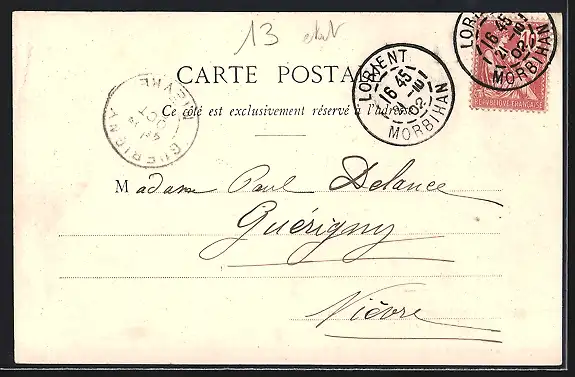 13
CARTE POSTALE
Ce côté est exclusivement réservé à l'adresse
LORIENT
16 45
02
MORBIHAN
LORIENT
16 45
02
MORBIHAN
10
RÉPUBLIQUE FRANÇAISE
GUERIGNY
OCT
NIEVRE
Madame Paul Delance
Guérigny
Nièvre